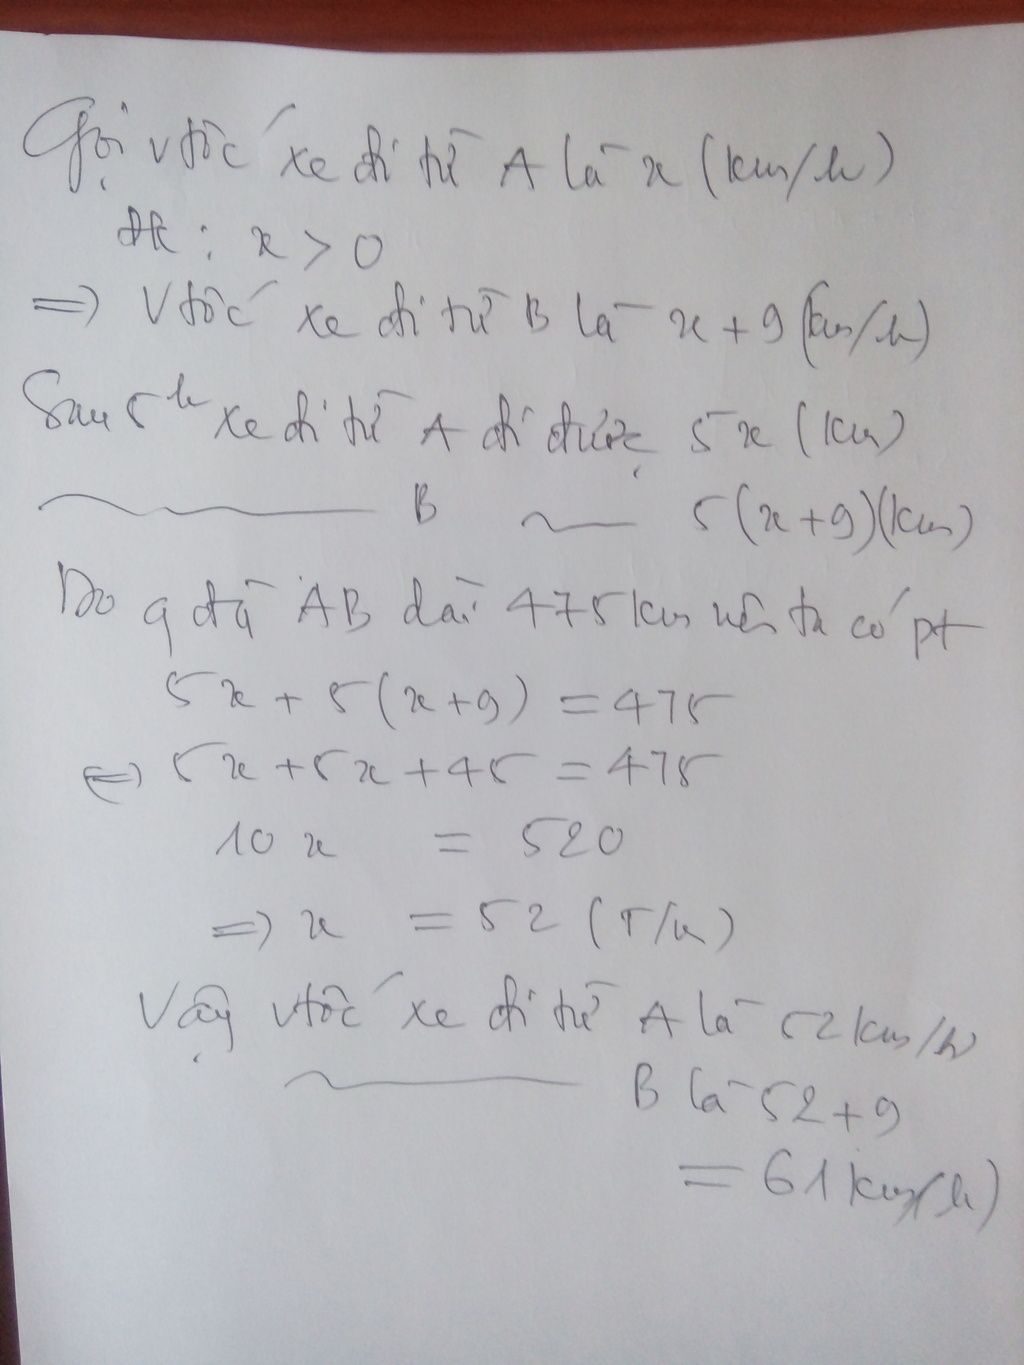 Gọi vtốc xe đi từ A là x (km/h)
đk : x > 0
=> Vtốc xe đi từ B là x + 9 (km/h)
Sau 5h xe đi từ A đi được 5x (km)
B 5(x+9)(km)
Do qđg AB dài 475km nên ta có pt
5x + 5(x+9) = 475
<=> 5x + 5x + 45 = 475
10x = 520
=> x = 52 (T/m)
Vậy vtốc xe đi từ A là 52km/h
B là 52+9
= 61km/h)